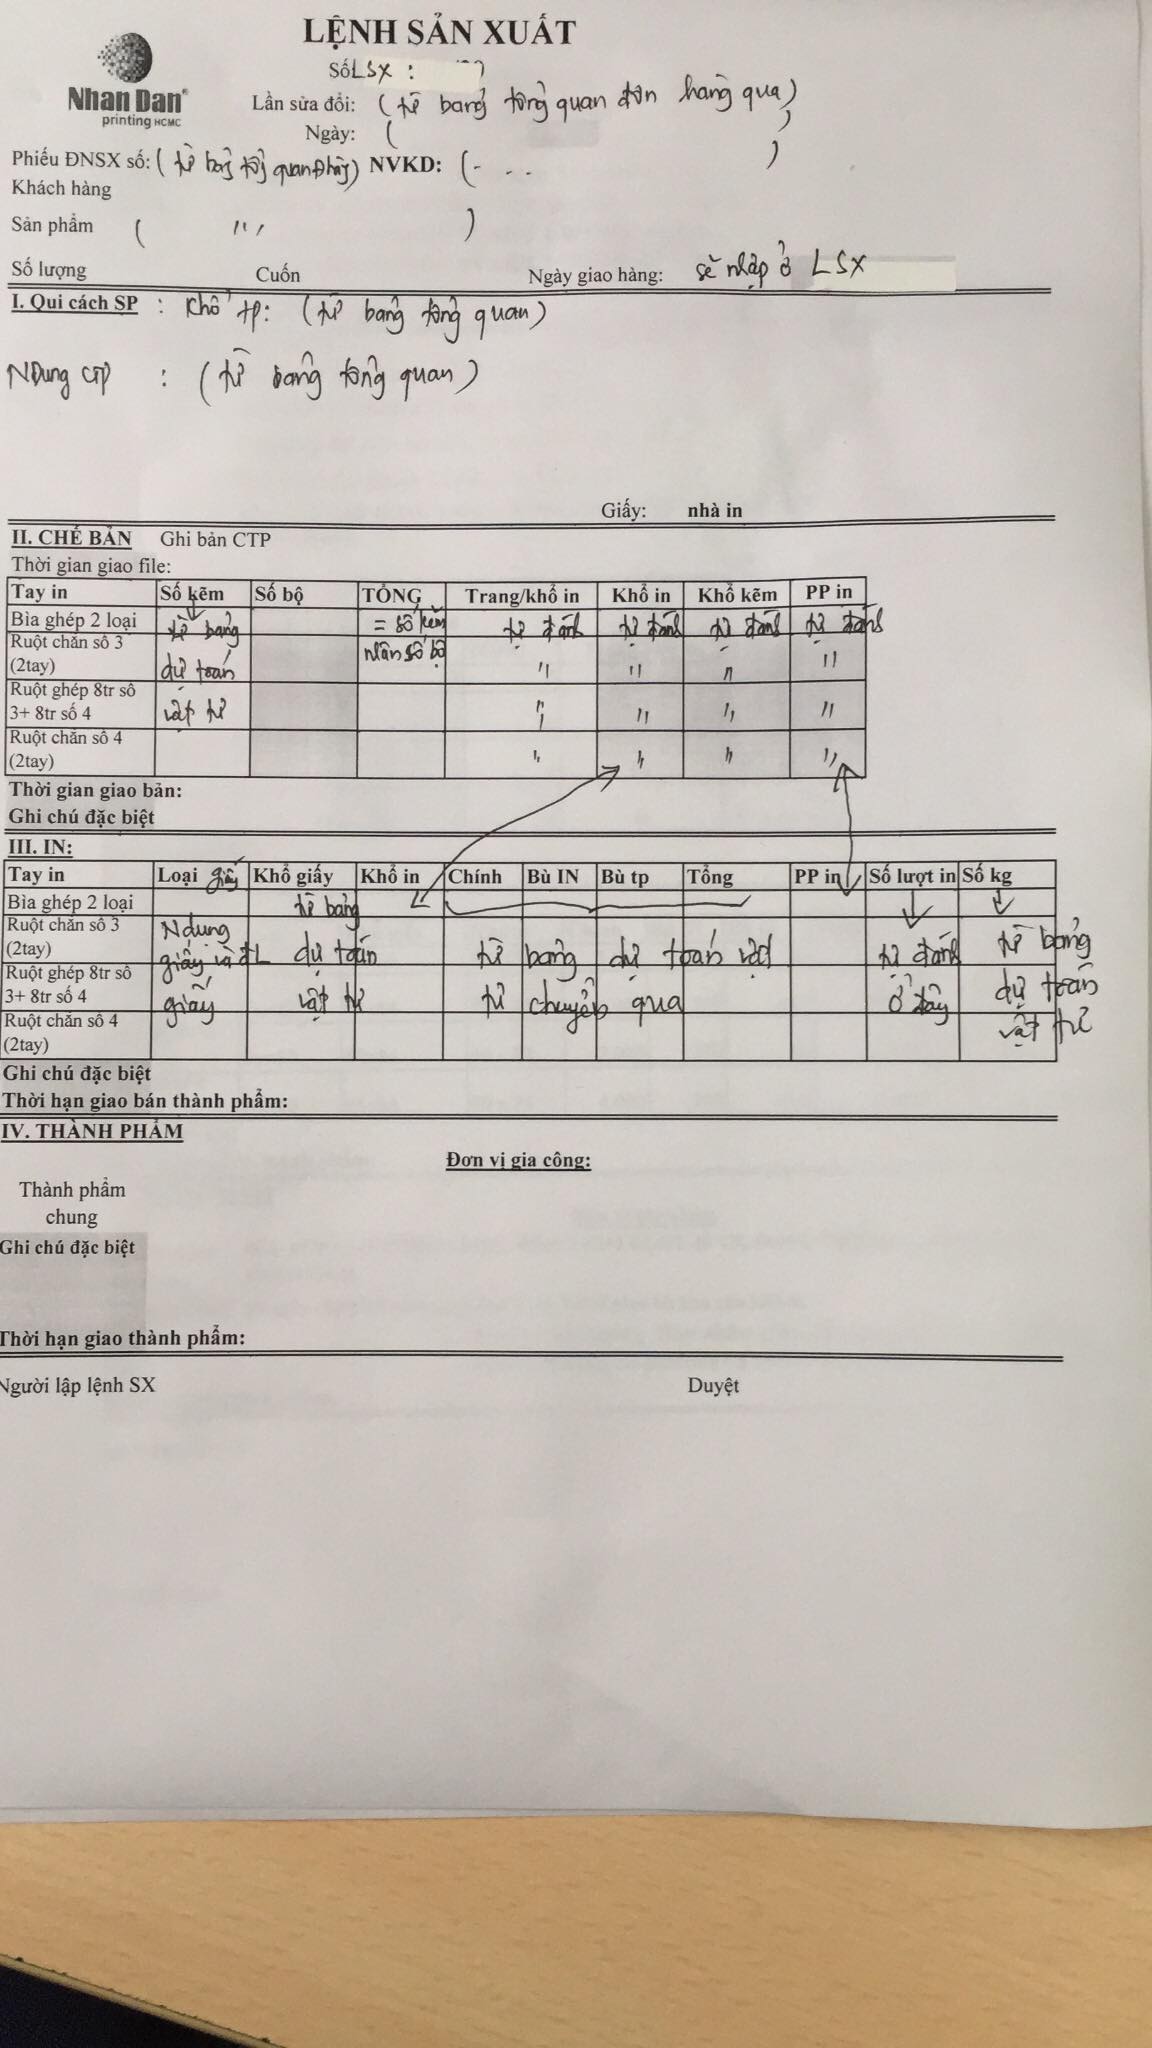 LỆNH SẢN XUẤT
Nhan Dan
printing HCMC
Số LSX :
Lần sửa đổi: (từ bảng tổng quan đơn hàng qua)
Ngày: ( )
Phiếu ĐNSX số: (từ bảng tổng quan Đhàng) NVKD: (- . . . )
Khách hàng
Sản phẩm ( " )
Số lượng Cuốn Ngày giao hàng: sẽ nhập ở LSX
I. Qui cách SP : Khổ tp: (từ bảng tổng quan)
NDung CTP : (từ bảng tổng quan)
Giấy: nhà in
II. CHẾ BẢN Ghi bản CTP
Thời gian giao file:
Tay in Số kẽm Số bộ TỔNG Trang/khổ in Khổ in Khổ kẽm PP in
Bìa ghép 2 loại từ bảng = số kẽm tự đánh tự đánh tự đánh tự đánh
Ruột chẵn số 3 nhân số bộ
(2tay) dự toán " " " "
Ruột ghép 8tr số
3+ 8tr số 4 vật tư " " " "
Ruột chẵn số 4
(2tay) " " " "
Thời gian giao bản:
Ghi chú đặc biệt
III. IN:
Tay in Loại giấy Khổ giấy Khổ in Chính Bù IN Bù tp Tổng PP in Số lượt in Số kg
Bìa ghép 2 loại từ bảng
Ruột chẵn số 3 Ndung từ bảng
(2tay) giấy và ĐL dự toán từ bảng dự toán vật tự đánh
Ruột ghép 8tr số dự toán
3+ 8tr số 4 giấy vật tư tư chuyển qua ở đây
Ruột chẵn số 4 vật tư
(2tay)
Ghi chú đặc biệt
Thời hạn giao bán thành phẩm:
IV. THÀNH PHẨM
Đơn vị gia công:
Thành phẩm
chung
Ghi chú đặc biệt
Thời hạn giao thành phẩm:
Người lập lệnh SX Duyệt